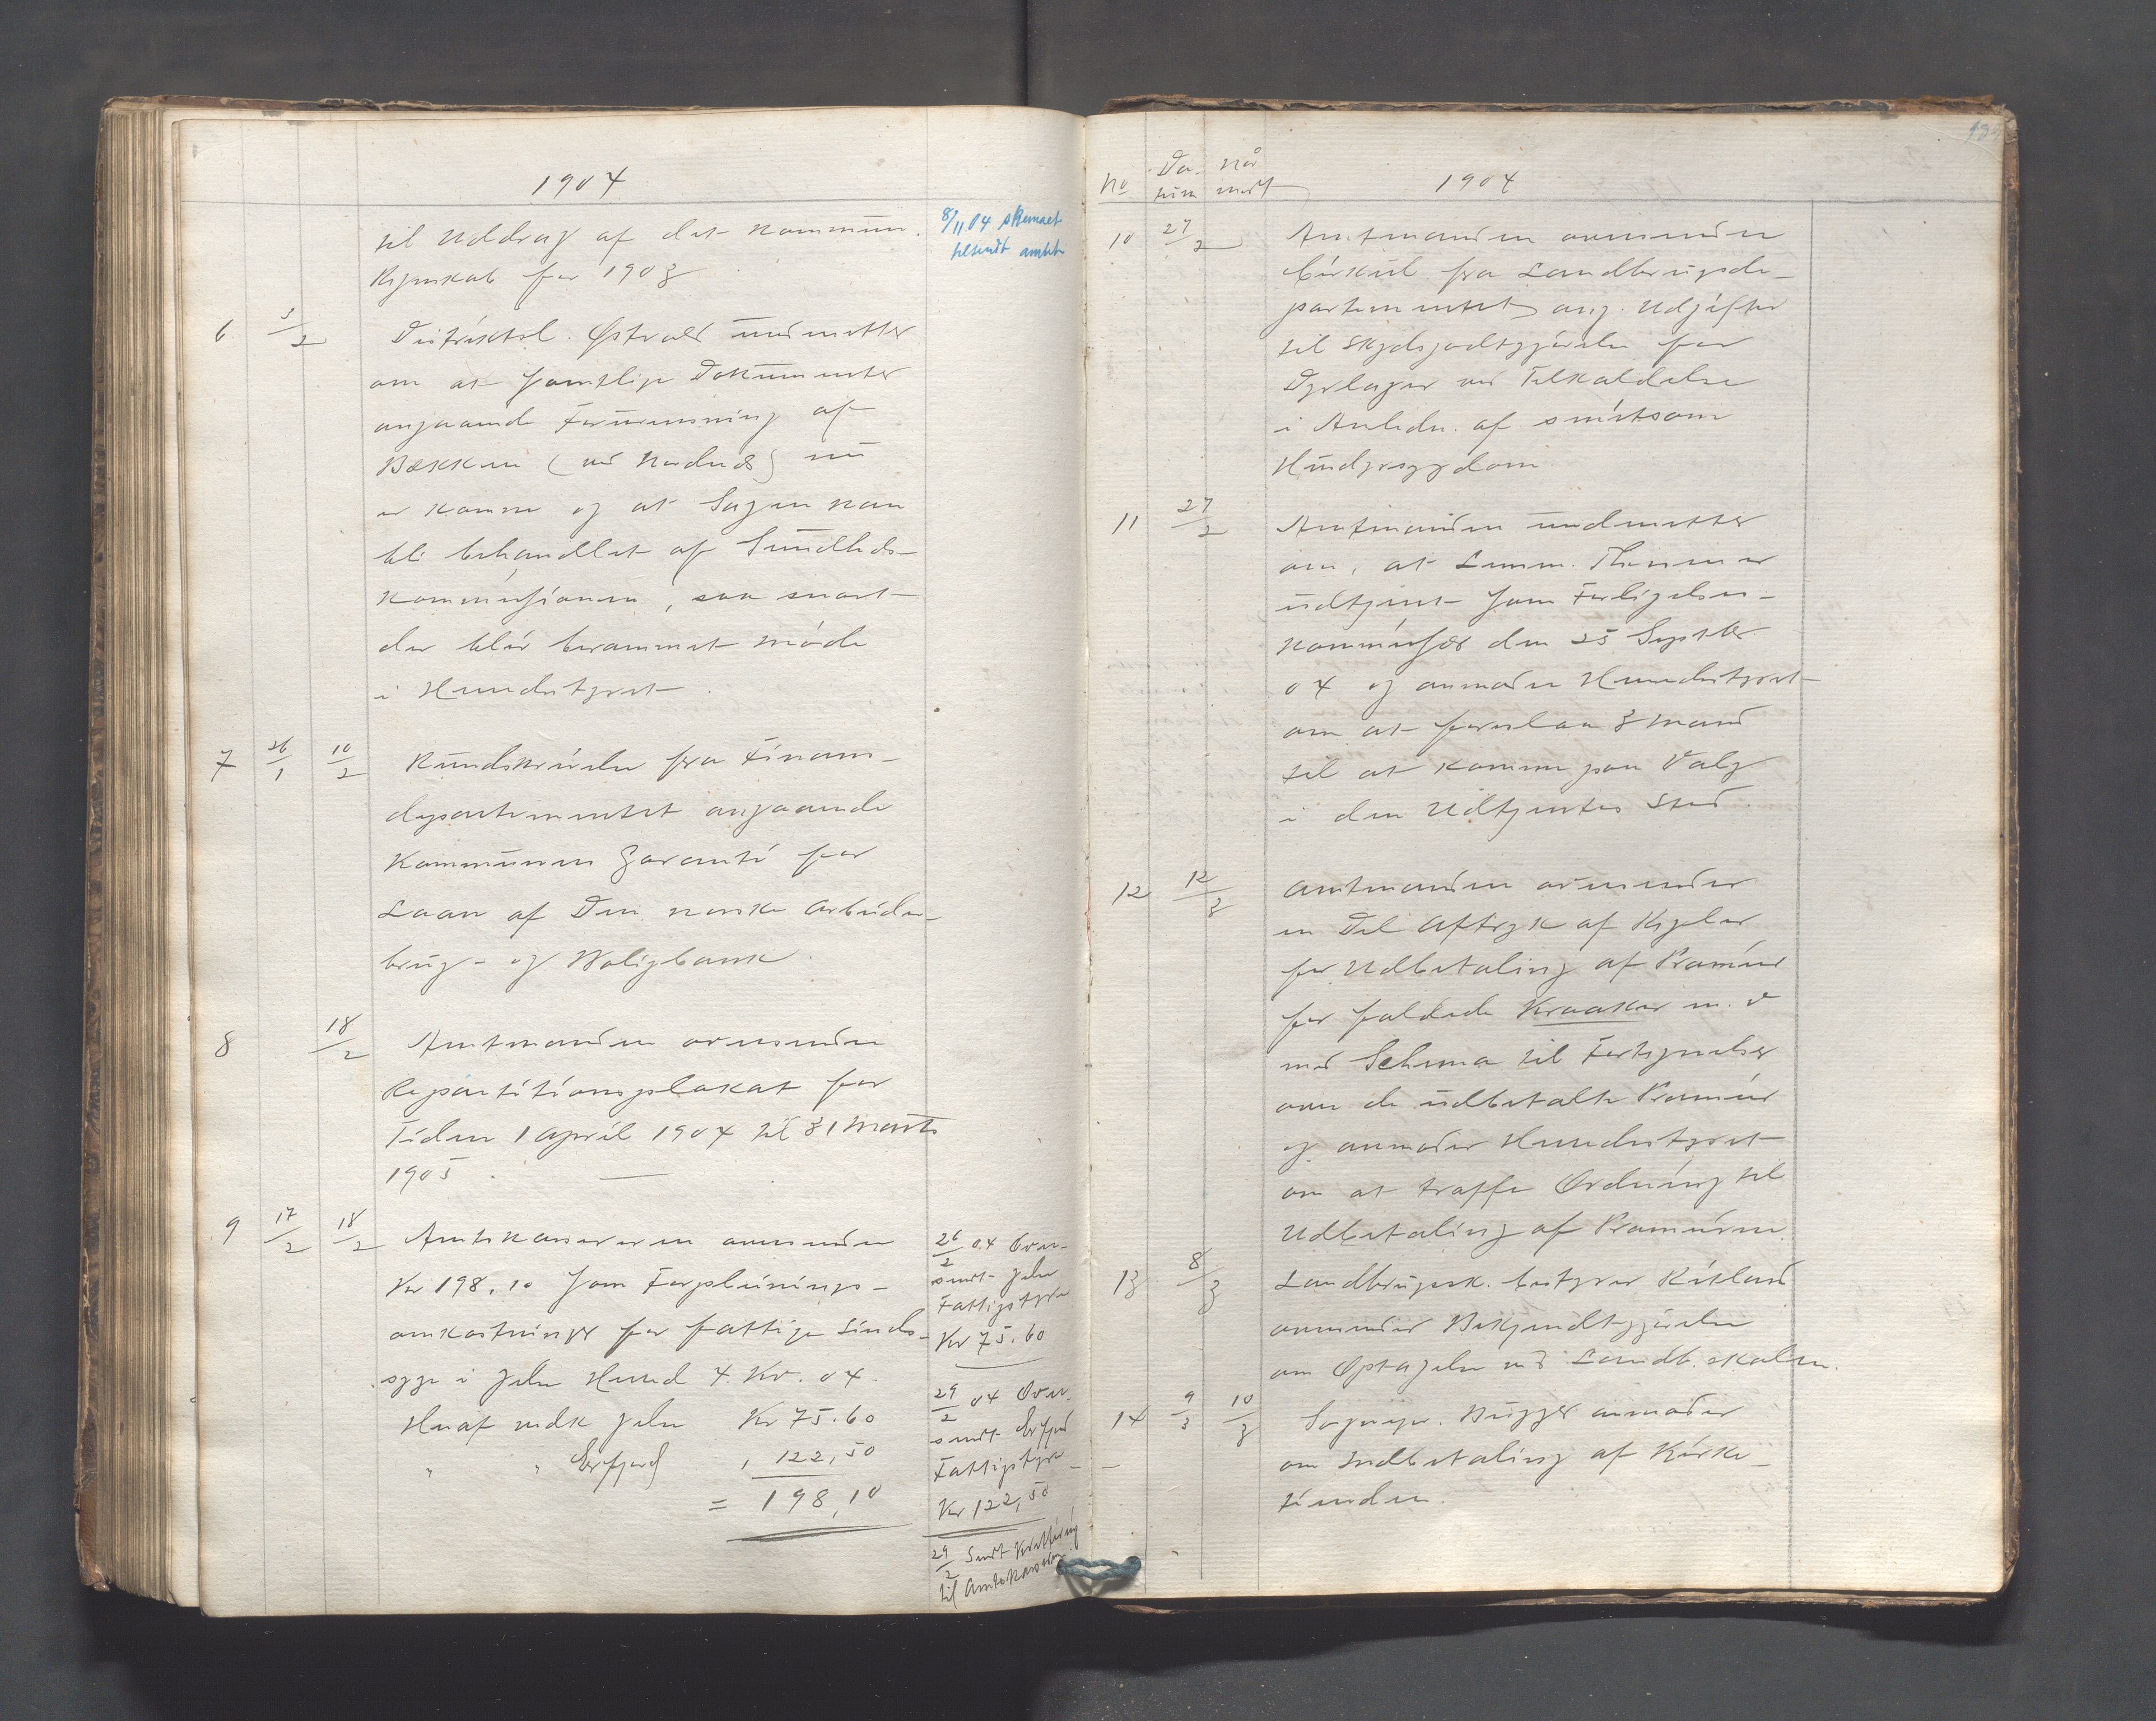 1904
til Uddrag af det kommun.
Regnskab for 1903
8/11 04 skemaet
tilsendt amtet
6 3/2 Distriktsl. Østvold underretter
om at samtlige Dokumenter
angaaende Forurensning af
Bækken (ved Nordnes) nu
er komne og at Sagen kan
bli behandlet af Sundheds-
kommissionen, saa snart
der blir berammet Møde
i Herredstyret.
7 26/1 10/2 Rundskrivelse fra Finans-
departementet angaaende
Kommunens Garanti for
Laan af Den norske Arbeider-
brug- og Boligbank.
8 18/2 Amtmanden oversender
Repartitionsplakat for
Tiden 1 April 1904 til 31 Marts
1905.
9 17/2 18/2 Amtskasereren oversender
Kr 198,10 som Forpleinings-
omkostninger for fattige Sinds-
syge i Jelse Herred 4. Kv. 04.
Heraf vedk Jelse Kr 75.60
" " Erfjord " 122,50
= 198,10
26/2 04 Over-
sendt Jelse
Fattigstyre
Kr 75.60
29/2 04 Over-
sendt Erfjord
Fattigstyre
Kr 122,50
29/2 Sendt Kvittering
til Amtskasereren
No Da-tum Når modt 1904
10 27/2 Amtmanden oversender
Cirkul. fra Landbrugsde-
partementet ang. Udgifter
til Skydsgodtgjørelse for
Dyrlæger ved Tilkaldelse
i Anledn. af smitsom
Husdyrsygdom
11 27/2 Amtmanden underretter
om, at Lensm. Thorsen er
udtjent som Forligelses-
kommissær den 25 Septbr.
04 og anmoder Herredstyret
om at foreslaa 3 Mand
til at komme paa Valg
i den Udtjentes Sted.
12 12/3 Amtmanden oversender
en Del Aftryk af Regler
for Udbetaling af Præmier
for fældede Kraaker m.v
med Schema til Fortegnelse
over de udbetalte Præmier
og anmoder Herredstyret
om at træffe Ordning til
Udbetaling af Præmierne.
13 8/3 Landbrugssk. bestyrer
oversender Bekjendtgjørelse
om Optagelse ved Landb. skolen.
14 9/3 10/3 Sognepr. Bugge anmoder
om Indbetaling af Kirke-
tienden.